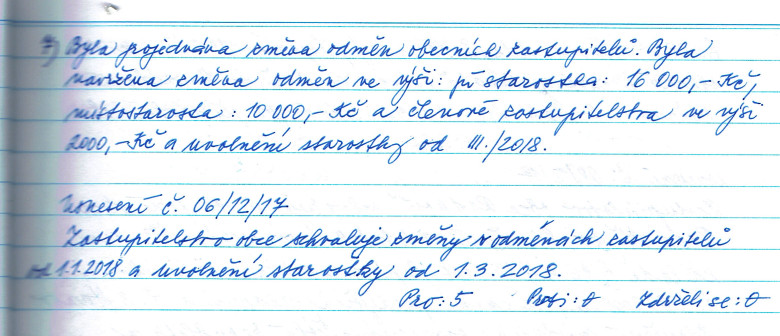 7) Byla projednána změna odměn obecních zastupitelů. Byla
navržena změna odměn ve výši: pí starostka: 16 000,- Kč,
místostarosta: 10 000,- Kč a členové zastupitelstva ve výši
2000,- Kč a uvolnění starostky od III./2018.
Usnesení č. 06/12/17
Zastupitelstvo obce schvaluje změny v odměnách zastupitelů
od 1.1.2018 a uvolnění starostky od 1.3.2018.
Pro: 5 Proti: 0 Zdrželi se: 0